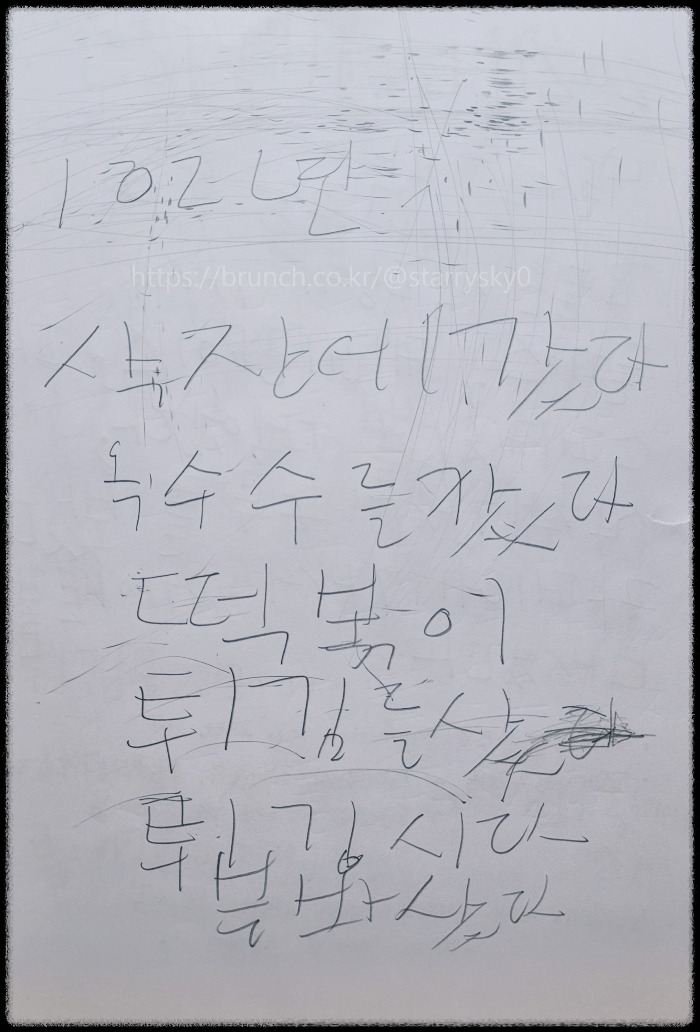 102 난
https://brunch.co.kr/@starrysky0
사직잔데 갔다
옥수수를 샀다
떡볶이
튀김를 샀다
튀김 시다
불봐샀다